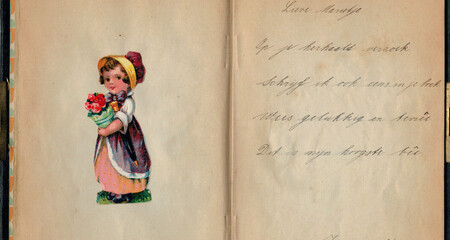 Lieve Mientje
Op je herhaald verzoek
Schrijf ik ook eens in je boek
Wees gelukkig en tevrêe
Dat is mijn hoogste bêe